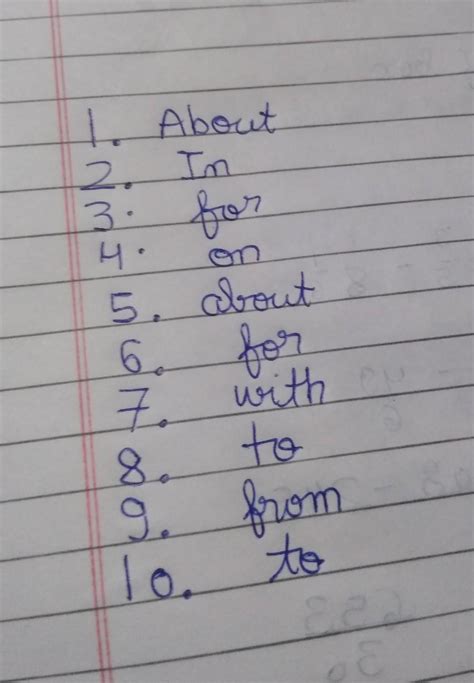 1. About
2. In
3. for
4. on
5. about
6. for
7. with
8. to
9. from
10. to